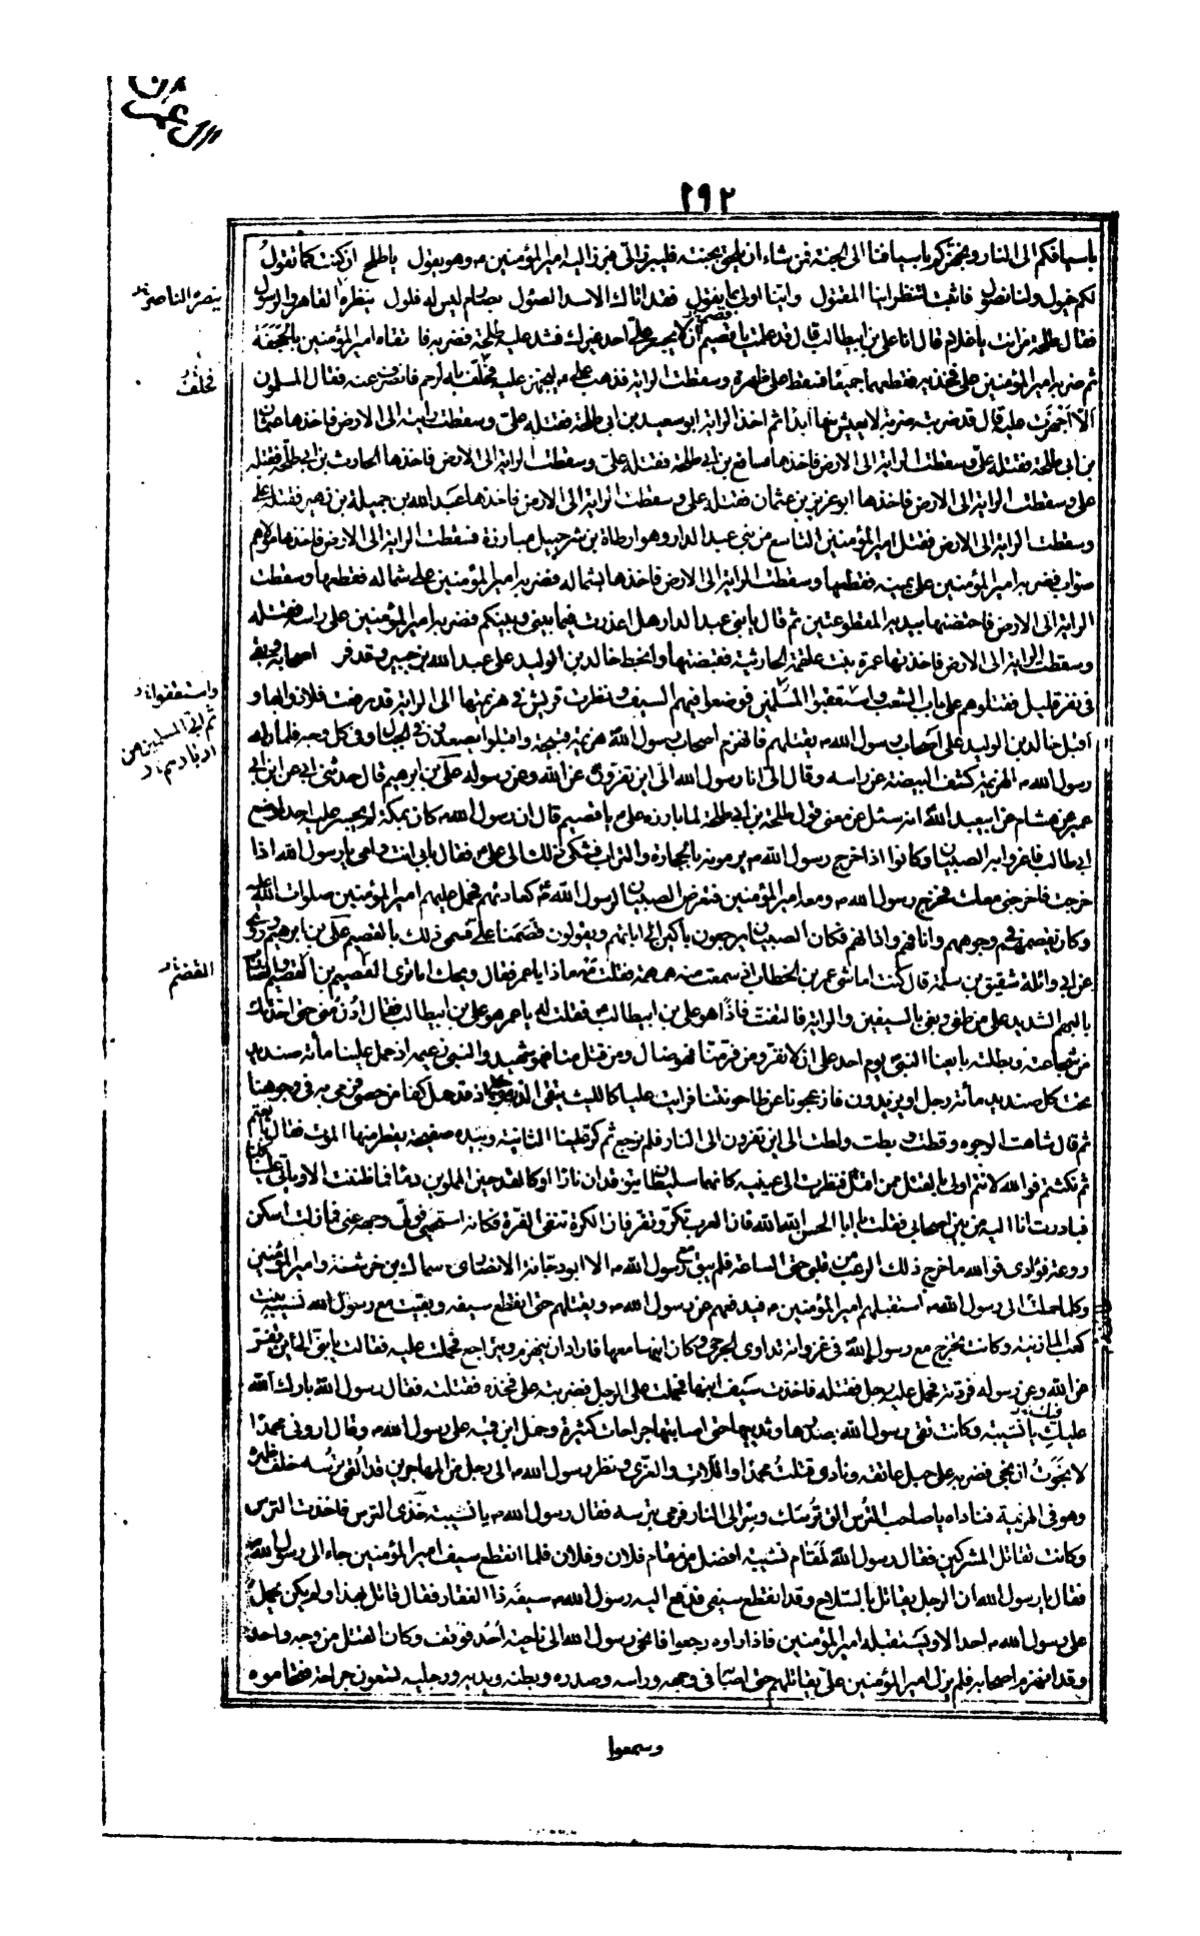 ال عمران
٢٩٢
باسيافكم الى النار ونجهزكم باسيافنا الى الجنة فمن شاء ان يلحق بجنته فليبرز الىّ فبرز اليه امير المؤمنين وهو يقول يا طلح ان كنت كما تقول
لكم خيول ولنا نصول فاثبت لننظر اينا المقتول واينا اولى بما يقول فقد اتاك الاسد الصئول بصارم ليس له فلول ينظره القاهر والرسول
ينصره الناصر
فقال طلحة من انت يا غلام قال انا على بن ابيطالب قال قد علمت يا قضيم انه لا يجسر علىّ احد غيرك فشد عليه طلحة فضربه فاتقاه امير المؤمنين بالحجفة
ثم ضربه امير المؤمنين على فخذيه فقطعهما جميعا فسقط على ظهره وسقطت الراية فذهب على ليجهز عليه فحلّفه بالرحم فانصرف عنه فقال المسلمون
فحلف
الا اجهزت عليه قال قد ضربته ضربة لا يعيش منها ابدا ثم اخذ الراية ابو سعيد بن ابى طلحة فقتله علىّ وسقطت رايته الى الارض فاخذها عثمان
بن ابى طلحة فقتله علىّ وسقطت الراية الى الارض فاخذها مسافع بن ابى طلحة فقتله علىّ وسقطت الراية الى الارض فاخذها الحارث بن ابى طلحة فقتله
على وسقطت الراية الى الارض فاخذها ابو عزيز بن عثمان فقتله على وسقطت الراية الى الارض فاخذها عبد الله بن جميلة بن زهير فقتله على
وسقطت الراية الى الارض فقتل امير المؤمنين التاسع من بنى عبد الدار وهو ارطاة بن شرجبيل مبارزة فسقطت الراية الى الارض فاخذها مولاهم
صواب فضربه امير المؤمنين على يمينه فقطعها وسقطت الراية الى الارض فاخذها بشماله فضربه امير المؤمنين على شماله فقطعها وسقطت
الراية الى الارض فاحتضنها بيديه المقطوعتين ثم قال يا بنى عبد الدار هل اعذرت فيما بينى وبينكم فضربه امير المؤمنين على راسه فقتله
وسقطت الراية الى الارض فاخذتها عمرة بنت علقمة الحارثية فقبضتها وانحط خالد بن الوليد على عبد الله بن جبير وقد فر اصحابه وبقى
فى نفر قليل فقتلوهم على باب الشعب واستعقبوا المسلمين فوضعوا فيهم السيف ونظرت قريش فى هزيمتها الى الراية قد رفعت فلاذوا بها و
واستقفوا
ثم اتى المسلمين من
ادبارهم
اقبل خالد بن الوليد على اصحاب رسول الله يقتلهم فانهزم اصحاب رسول الله هزيمة قبيحة واقبلوا يصعدون فى الجبال وفى كل وجه فلما راى
رسول الله الهزيمة كشف البيضة عن راسه وقال الىّ انا رسول الله الى اين تفرّون عن الله وعن رسوله على بن ابرهيم قال حدثنى ابى عن ابن ابى
عمير عن هشام عن ابيعبد الله انه سئل عن معنى قول طلحة بن ابى طلحة لما بارزه على يا قضيم قال ان رسول الله كان بمكة لم يجسر عليه احد لموضع
ابى طالب فاغروا به الصبيان وكانوا اذا خرج رسول الله يرمونه بالحجارة والتراب فشكى ذلك الى على فقال بابى انت وامى يا رسول الله اذا
خرجت فاخرجنى معك فخرج رسول الله ومعه امير المؤمنين فتعرض الصبيان لرسول الله كعادتهم فحمل عليهم امير المؤمنين صلوات الله عليه
وكان يقضمهم فى وجوههم وانافهم واذانهم فكان الصبيان يرجعون باكين الى ابائهم ويقولون قضمنا علىّ فسمى ذلك بالقضيم على بن ابرهيم وروى
عن ابى وائلة شقيق بن سلمة قال كنت اماشى عمر بن الخطاب اذ سمعت منه همهمة فقلت مه ماذا يا عمر فقال ويحك اما ترى القضيم بن القضيم والضارب
القضم
بالبهم الشديد على من طغى وبغى بالسيفين والراية فالتفت فاذا هو على بن ابيطالب فقلت له يا عمر هو على بن ابيطالب فقال ادن منى حتى احدثك
من شجاعته وبطلته بايعنا النبى يوم احد على ان لا نفر ومن فر منا فهو ضال ومن قتل منا فهو شهيد والنبى زعيمه اذ حمل علينا مأة صنديد
تحت كل صنديد مأة رجل او يزيدون فازعجونا عن طاحونتنا فرايت عليا كالليث يتقى الذر اذ قد حمل كفا من حصى فرمى به فى وجوهنا
ثم قال شاهت الوجوه وقطت وبطت ولطت الى اين تفرون الى النار فلم نرجع ثم كر علينا الثانية وبيده صفيحة يقطر منها الموت فقال بايعتم
ثم نكثتم فو الله لانتم اولى بالقتل ممن اقتل فنظرت الى عينيه كانهما سليطان يتوقدان نارا او كالقدحين المملوين دما فما ظننت الا وياتى علينا كلنا
فبادرت انا اليه من بين اصحابى فقلت يا ابا الحسن الله الله فان العرب تكر وتفر فان الكرة تنفى الفرة فكانه استحيى فولى وجهه عنى فما زلت اسكن
روعة فؤادى فو الله ما خرج ذلك الرعب من قلبى حتى الساعة فلم يبق مع رسول الله الا ابو دجانة الانصارى سماك بن خرشة وامير المؤمنين
وكلما حملت الى رسول الله استقبلهم امير المؤمنين فيدفعهم عن رسول الله ويقتلهم حتى انقطع سيفه وبقيت مع رسول الله نسيبة بنت
كعب المازنية وكانت تخرج مع رسول الله فى غزواته تداوى الجرحى وكان ابنها معها فاراد ان ينهزم ويتراجع فحملت عليه فقالت يا بنى الى اين تفر
عن الله وعن رسوله فردته فحمل عليه رجل فقتله فاخذت سيف ابنها فحملت على الرجل فضربته على فخذه فقتلته فقال رسول الله بارك الله
عليك يا نسيبة وكانت تقى رسول الله بصدرها وثدييها حتى اصابتها جراحات كثيرة وحمل ابن قمية على رسول الله وقال ارونى محمدا
لا نجوت ان نجى فضربه على حبل عاتقه ونادى قتلت محمدا واللات والعزى ونظر رسول الله الى رجل من المهاجرين قد القى ترسه خلف ظهره
وهو فى الهزيمة فناداه يا صاحب الترس الق ترسك ومر الى النار فرمى بترسه فقال رسول الله يا نسيبة خذى الترس فاخذت الترس
وكانت تقاتل المشركين فقال رسول الله لمقام نسيبة افضل من مقام فلان وفلان فلما انقطع سيف امير المؤمنين جاء الى رسول الله
فقال يا رسول الله ان الرجل يقاتل بالسلاح وقد انقطع سيفى فدفع اليه رسول الله سيفه ذا الفقار فقال قاتل بهذا ولم يكن يحمل
على رسول الله احد الا ويستقبله امير المؤمنين فاذا راوه رجعوا فانحى رسول الله الى ناحية احد فوقف وكان القتل من وجه واحد
وقد انهزم اصحابه فلم يزل امير المؤمنين علىّ يقاتلهم حتى اصابه فى وجهه وراسه وصدره وبطنه ويديه ورجليه تسعون جراحة فتحاموه
وسمعوا